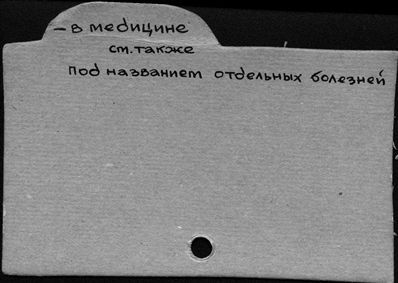 – в медицине
см. также
под названием отдельных болезней